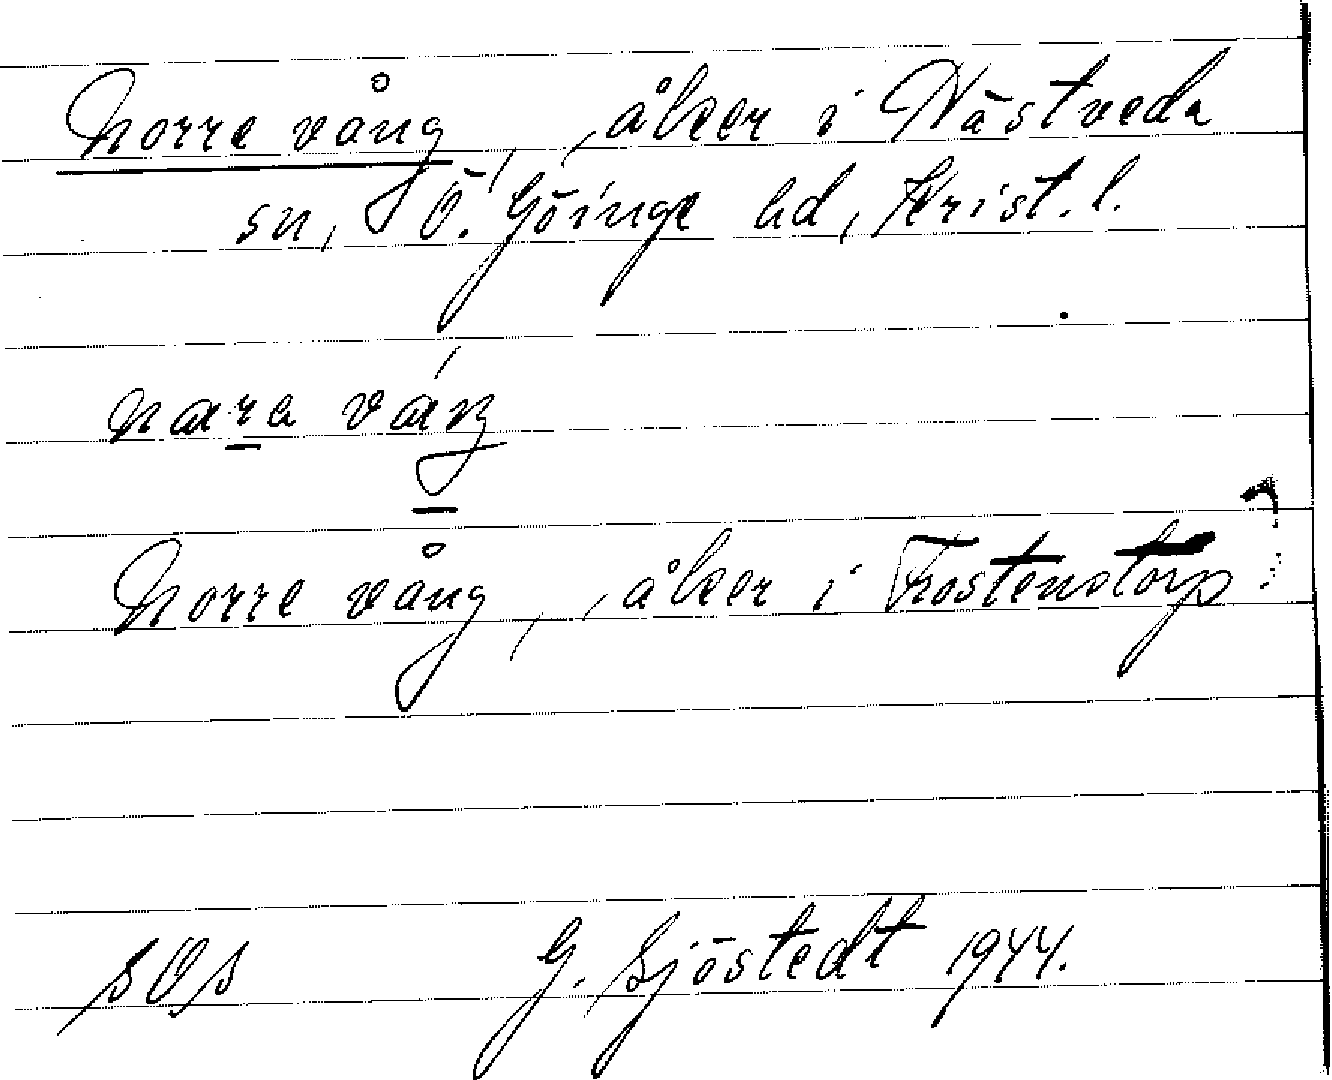 Norre vång, åker i Nästveda
sn, Ö. Göinge hd, Krist. l.
nara váŋ
Norre vång, åker i Trostenstorp
SOS G. Sjöstedt 1944.